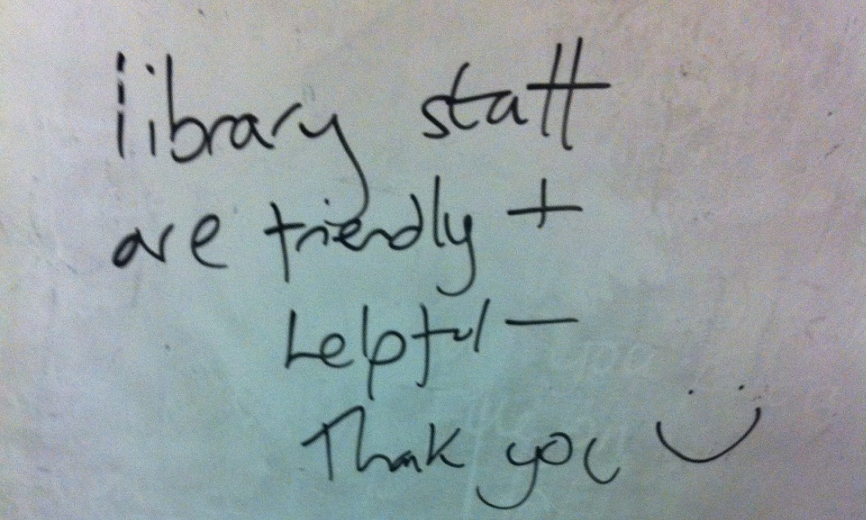 library staff
are friendly +
helpful —
Thank you :)